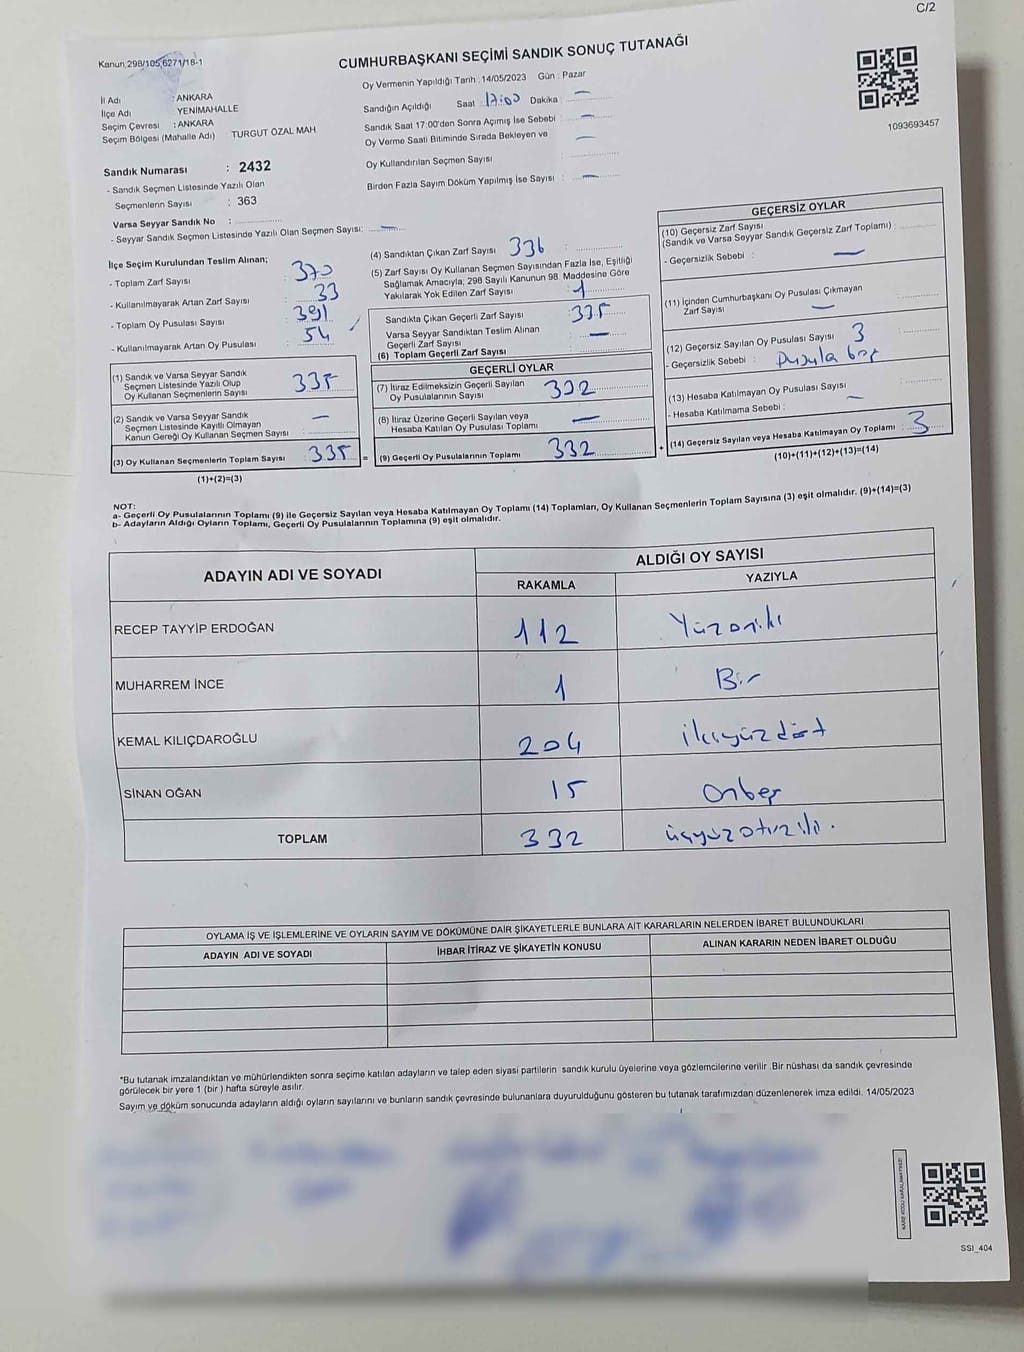 C/2
Kanun 298/105,6271/18-1
CUMHURBAŞKANI SEÇİMİ SANDIK SONUÇ TUTANAĞI
1093693457
İl Adı : ANKARA
İlçe Adı YENİMAHALLE
Seçim Çevresi : ANKARA
Seçim Bölgesi (Mahalle Adı) TURGUT ÖZAL MAH.
Sandık Numarası : 2432
- Sandık Seçmen Listesinde Yazılı Olan
Seçmenlerin Sayısı : 363
Varsa Seyyar Sandık No :
- Seyyar Sandık Seçmen Listesinde Yazılı Olan Seçmen Sayısı: —
Oy Vermenin Yapıldığı Tarih : 14/05/2023 Gün : Pazar
Sandığın Açıldığı Saat 17:00 Dakika : —
Sandık Saat 17:00'den Sonra Açımış İse Sebebi : —
Oy Verme Saati Bitiminde Sırada Bekleyen ve —
Oy Kullandırılan Seçmen Sayısı :
Birden Fazla Sayım Döküm Yapılmış İse Sayısı : —
İlçe Seçim Kurulundan Teslim Alınan;
- Toplam Zarf Sayısı : 370
- Kullanılmayarak Artan Zarf Sayısı : 33
- Toplam Oy Pusulası Sayısı : 391
- Kullanılmayarak Artan Oy Pusulası : 54
(1) Sandık ve Varsa Seyyar Sandık
Seçmen Listesinde Yazılı Olup
Oy Kullanan Seçmenlerin Sayısı : 335
(2) Sandık ve Varsa Seyyar Sandık
Seçmen Listesinde Kayıtlı Olmayan
Kanun Gereği Oy Kullanan Seçmen Sayısı : —
(3) Oy Kullanan Seçmenlerin Toplam Sayısı : 335
(1)+(2)=(3)
(4) Sandıktan Çıkan Zarf Sayısı 336 :
(5) Zarf Sayısı Oy Kullanan Seçmen Sayısından Fazla İse, Eşitliği
Sağlamak Amacıyla; 298 Sayılı Kanunun 98. Maddesine Göre
Yakılarak Yok Edilen Zarf Sayısı : 1
Sandıkta Çıkan Geçerli Zarf Sayısı : 335
Varsa Seyyar Sandıktan Teslim Alınan
Geçerli Zarf Sayısı : —
(6) Toplam Geçerli Zarf Sayısı :
GEÇERLİ OYLAR
(7) İtiraz Edilmeksizin Geçerli Sayılan
Oy Pusulalarının Sayısı : 332
(8) İtiraz Üzerine Geçerli Sayılan veya
Hesaba Katılan Oy Pusulası Toplamı : —
= (9) Geçerli Oy Pusulalarının Toplamı : 332
GEÇERSİZ OYLAR
(10) Geçersiz Zarf Sayısı
(Sandık ve Varsa Seyyar Sandık Geçersiz Zarf Toplamı) :
- Geçersizlik Sebebi : —
(11) İçinden Cumhurbaşkanı Oy Pusulası Çıkmayan
Zarf Sayısı — :
(12) Geçersiz Sayılan Oy Pusulası Sayısı 3 :
- Geçersizlik Sebebi : Pusula boş
(13) Hesaba Katılmayan Oy Pusulası Sayısı :
- Hesaba Katılmama Sebebi : —
+ (14) Geçersiz Sayılan veya Hesaba Katılmayan Oy Toplamı : 3
(10)+(11)+(12)+(13)=(14)
NOT:
a- Geçerli Oy Pusulalarının Toplamı (9) ile Geçersiz Sayılan veya Hesaba Katılmayan Oy Toplamı (14) Toplamları, Oy Kullanan Seçmenlerin Toplam Sayısına (3) eşit olmalıdır. (9)+(14)=(3)
b- Adayların Aldığı Oyların Toplamı, Geçerli Oy Pusulalarının Toplamına (9) eşit olmalıdır.
ADAYIN ADI VE SOYADI ALDIĞI OY SAYISI
RAKAMLA YAZIYLA
RECEP TAYYİP ERDOĞAN 112 Yüzoniki
MUHARREM İNCE 1 Bir
KEMAL KILIÇDAROĞLU 204 ikiyüzdört
SİNAN OĞAN 15 Onbeş
TOPLAM 332 üçyüzotuziki.
OYLAMA İŞ VE İŞLEMLERİNE VE OYLARIN SAYIM VE DÖKÜMÜNE DAİR ŞİKAYETLERLE BUNLARA AİT KARARLARIN NELERDEN İBARET BULUNDUKLARI
ADAYIN ADI VE SOYADI İHBAR İTİRAZ VE ŞİKAYETİN KONUSU ALINAN KARARIN NEDEN İBARET OLDUĞU
*Bu tutanak imzalandıktan ve mühürlendikten sonra seçime katılan adayların ve talep eden siyasi partilerin sandık kurulu üyelerine veya gözlemcilerine verilir. Bir nüshası da sandık çevresinde
görülecek bir yere 1 (bir ) hafta süreyle asılır.
Sayım ve döküm sonucunda adayların aldığı oyların sayılarını ve bunların sandık çevresinde bulunanlara duyurulduğunu gösteren bu tutanak tarafımızdan düzenlenerek imza edildi. 14/05/2023
SSI_404